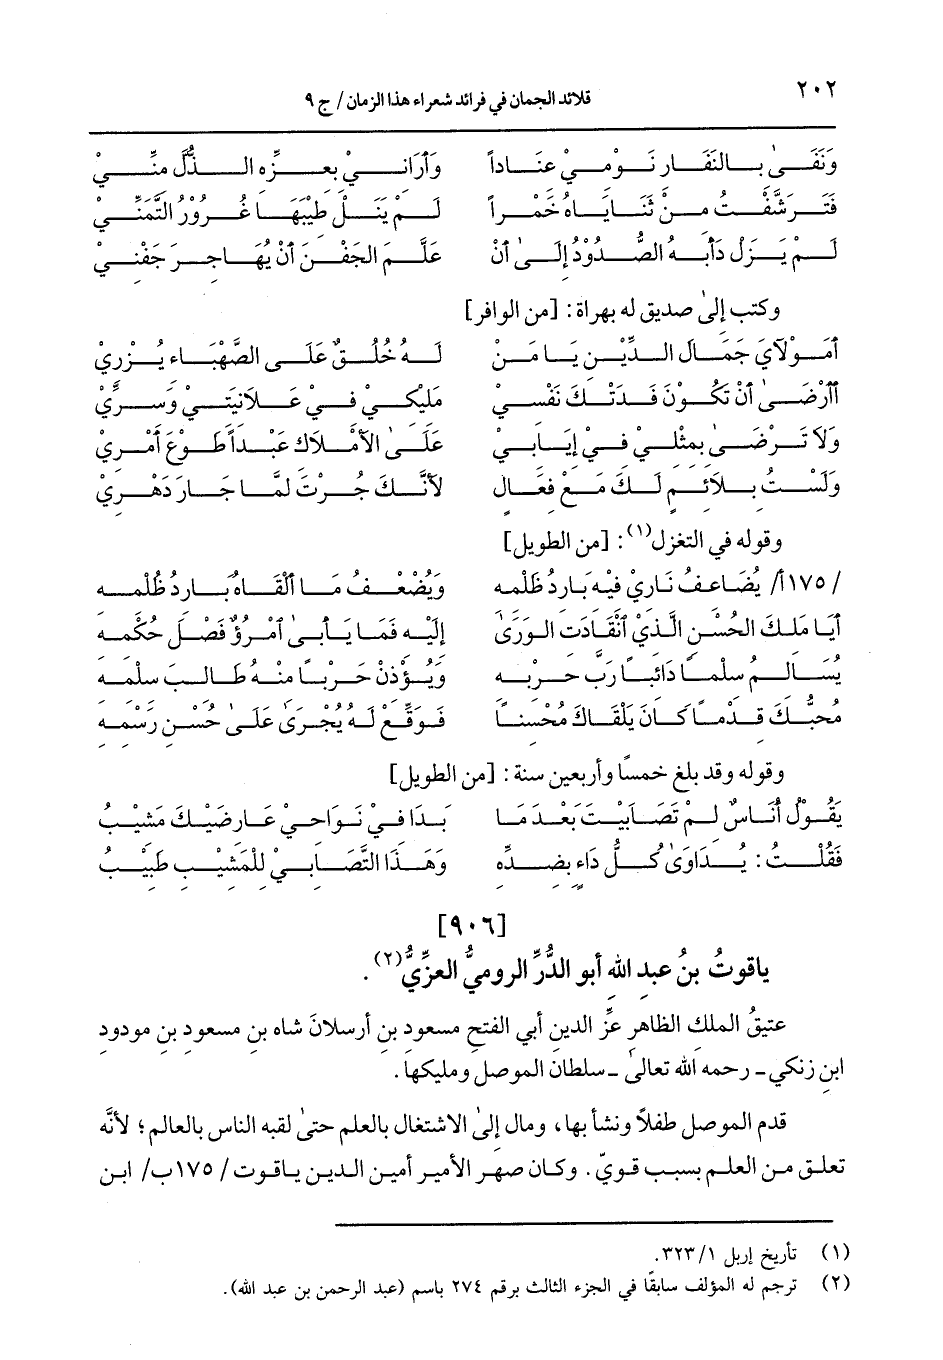 ٢٠٢ قلائد الجمان في فرائد شعراء هذا الزمان / ج ٩
وَنَفَىٰ بِالنِّفَارِ نَوْمِيْ عِنَاداً وَأَرَانِيْ بِعِزِّهِ الذُّلَّ مِنِّيْ
فَتَرَشَّفْتُ مِنْ ثَنَايَاهُ خَمْراً لَمْ يَنَلْ طِيْبَهَا غُرُوْرُ التَّمَنِّيْ
لَمْ يَزَلْ دَأْبَهُ الصُّدُوْدُ إِلَىٰ أَنْ عَلَّمَ الجَفْنَ أَنْ يُهَاجِرَ جَفْنِيْ
وكتب إلىٰ صديق له بهراة: [من الوافر]
أَمَوْلَايَ جَمَالَ الدِّيْنِ يَا مَنْ لَهُ خُلُقٌ عَلَى الصَّهْبَاءِ يُزْرِيْ
أَأَرْضَىٰ أَنْ تَكُوْنَ فَدَتْكَ نَفْسِيْ مَلِيْكِيْ فِيْ عَلَانِيَتِيْ وَسِرِّيْ
وَلَا تَرْضَىٰ بِمِثْلِيْ فِيْ إِيَابِيْ عَلَىٰ الأَمْلَاكِ عَبْداً طَوْعَ أَمْرِيْ
وَلَسْتُ بِلَائِمٍ لَكَ مَعْ فَعَالٍ لأَنَّكَ جُرْتَ لَمَّا جَارَ دَهْرِيْ
وقوله في التغزل(١): [من الطويل]
/ ١٧٥أ/ يُضَاعِفُ نَارِيْ فِيْهِ بَارِدُ ظَلْمِهِ وَيُضْعِفُ مَا أَلْقَاهُ بَارِدُ ظُلْمِهِ
أَيَا مَلِكَ الحُسْنِ الَّذِيْ أنْقَادَتِ الوَرَىٰ إِلَيْهِ فَمَا يَأْبَىٰ أمْرُؤٌ فَصْلَ حُكْمِهِ
يُسَالِمُ سِلْماً دَائِباً رَبَّ حَرْبِهِ وَيُؤْذِنُ حَرْبًا مِنْهُ طَالِبَ سِلْمِهِ
مُحِبُّكَ قِدْماً كَانَ يَلْقَاكَ مُحْسِناً فَوَقِّعْ لَهُ يُجْرَىٰ عَلَىٰ حُسْنِ رَسْمِهِ
وقوله وقد بلغ خمسًا وأربعين سنة: [من الطويل]
يَقُوْلُ أُنَاسٌ لِمْ تَصَابَيْتَ بَعْدَ مَا بَدَا فِيْ نَوَاحِيْ عَارِضَيْكَ مَشِيْبُ
فَقُلْتُ: يُدَاوَىٰ كُلُّ دَاءٍ بِضِدِّهِ وَهَذَا التَّصَابِيْ لِلْمَشِيْبِ طَبِيْبُ
[٩٠٦]
ياقوتُ بنُ عبد الله أبو الدُّرِّ الروميُّ العزِّيُّ(٢).
عتيقُ الملك الظاهر عزِّ الدين أبي الفتح مسعود بن أرسلانَ شاه بن مسعود بن مودود
ابن زنكي ـ رحمه الله تعالىٰ ـ سلطان الموصل ومليكها.
قدم الموصل طفلاً ونشأ بها، ومال إلىٰ الاشتغال بالعلم حتىٰ لقبه الناس بالعالم؛ لأنَّه
تعلق من العلم بسبب قويّ. وكان صهر الأمير أمين الدين ياقوت / ١٧٥ب/ ابن
(١) تأريخ إربل ٣٢٣/١.
(٢) ترجم له المؤلف سابقًا في الجزء الثالث برقم ٢٧٤ باسم (عبد الرحمن بن عبد الله).